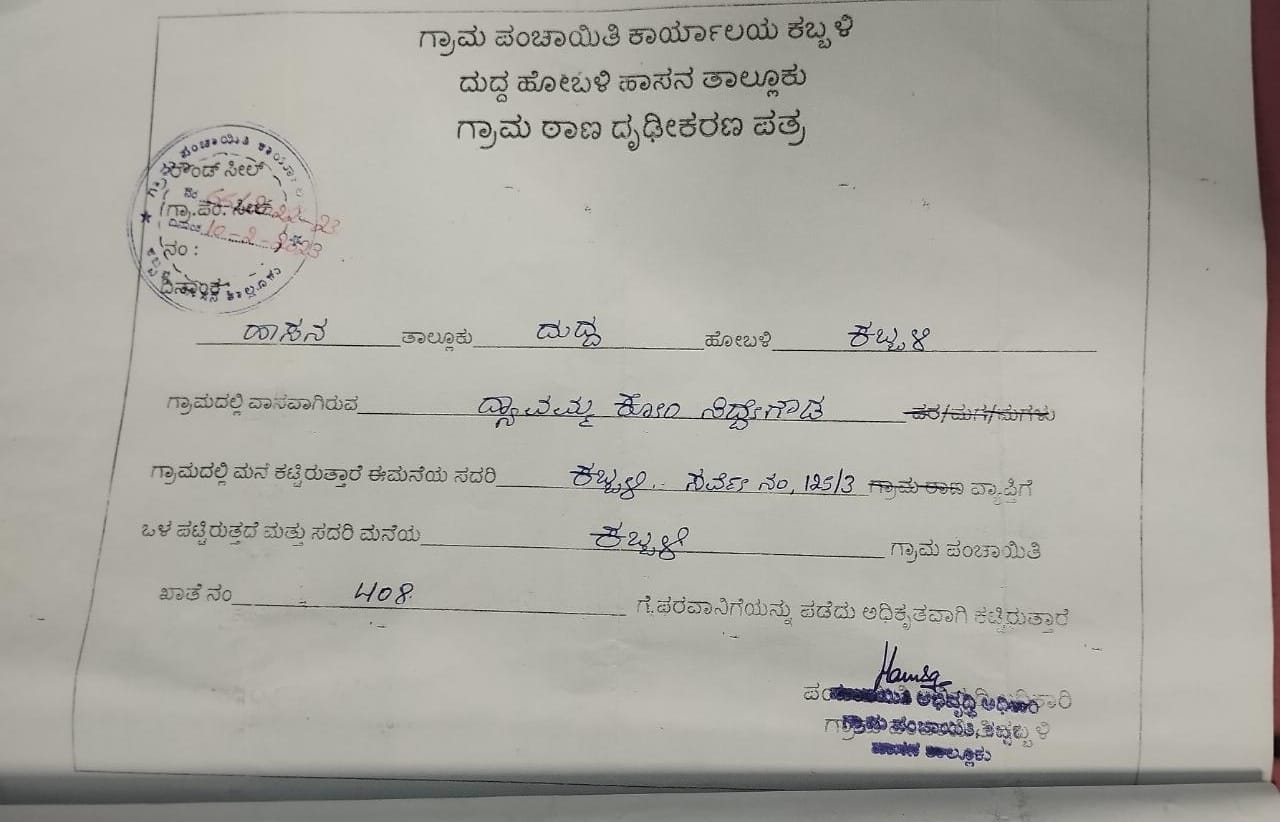 ಗ್ರಾಮ ಪಂಚಾಯಿತಿ ಕಾರ್ಯಾಲಯ ಕಬ್ಬಳಿ
ದುದ್ದ ಹೋಬಳಿ ಹಾಸನ ತಾಲ್ಲೂಕು
ಗ್ರಾಮ ಠಾಣ ದೃಢೀಕರಣ ಪತ್ರ
ಗ್ರಾಮ ಪಂಚಾಯಿತಿ
ರೌಂಡ್ ಸೀಲ್
ನಂ
ಗ್ರಾ.ಪಂ. ಸೀಲ್
10-2-2023
ನಂ:
ದಿನಾಂಕ
ಹಾಸನ ತಾಲ್ಲೂಕು ದುದ್ದ ಹೋಬಳಿ ಕಬ್ಬಳಿ
ಗ್ರಾಮದಲ್ಲಿ ವಾಸವಾಗಿರುವ ದ್ಯಾವಮ್ಮ ಕೋಂ ಸಿದ್ದೇಗೌಡ
ಗ್ರಾಮದಲ್ಲಿ ಮನೆ ಕಟ್ಟಿರುತ್ತಾರೆ ಈಮನೆಯ ಸದರಿ ಕಬ್ಬಳಿ. ಸರ್ವೆ ನಂ, 125/3 ಗ್ರಾಮ ಠಾಣ ವ್ಯಾಪ್ತಿಗೆ
ಒಳ ಪಟ್ಟಿರುತ್ತದೆ ಮತ್ತು ಸದರಿ ಮನೆಯ ಕಬ್ಬಳಿ ಗ್ರಾಮ ಪಂಚಾಯಿತಿ
ಖಾತೆ ನಂ 408 ಗೆ.ಪರವಾನಿಗೆಯನ್ನು ಪಡೆದು ಅಧಿಕೃತವಾಗಿ ಕಟ್ಟಿರುತ್ತಾರೆ
ಪಂಚಾಯಿತಿ ಅಭಿವೃದ್ಧಿ ಅಧಿಕಾರಿ
ಗ್ರಾಮ ಪಂಚಾಯಿತಿ, ಕಬ್ಬಳಿ
ಹಾಸನ ತಾಲ್ಲೂಕು